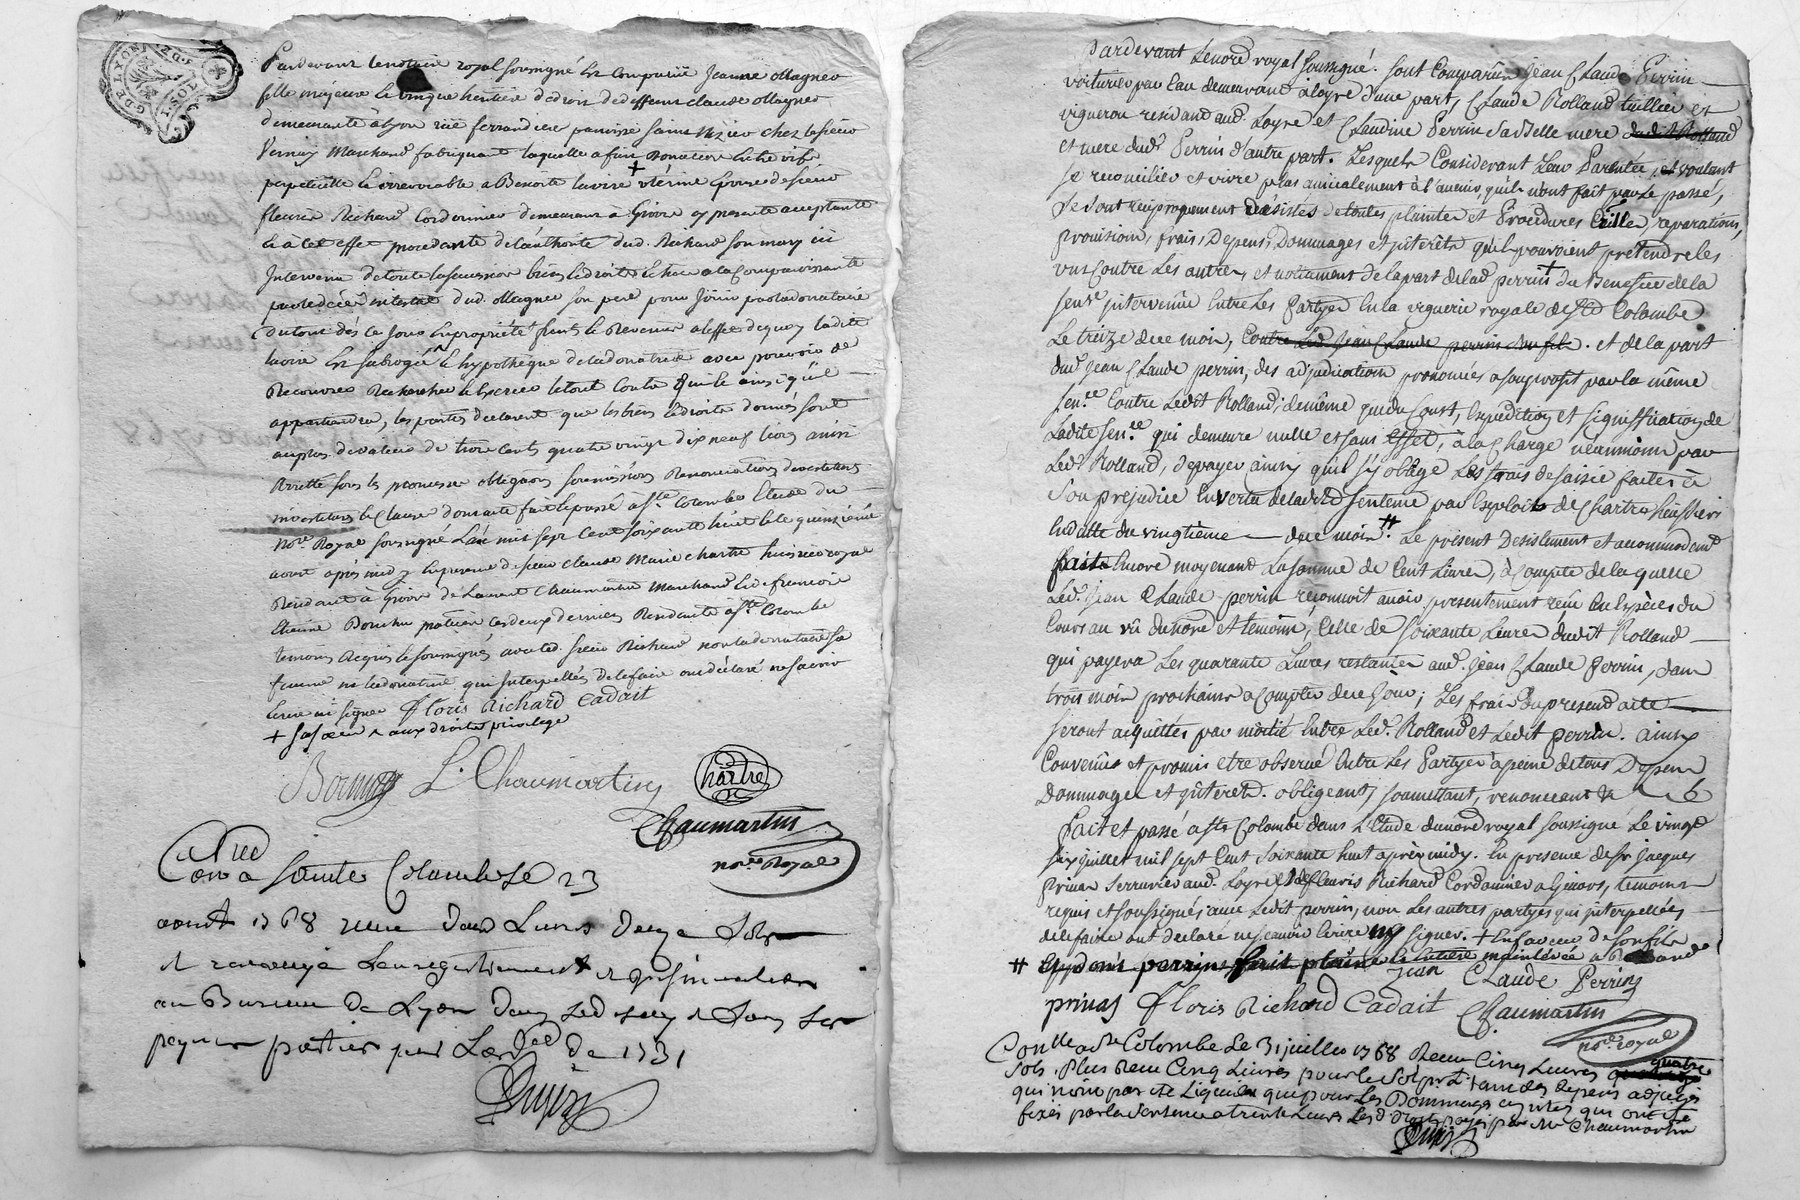 G DE LYON
Pardevant le notaire royal soussigné est comparüe Jeanne Magnev
fille majeure et unique heritiere de droit de deffunt claude Magnev
demeurante à Lyon rüe ferrandiere paroisse saint Nizier chez le sieur
Vernay Marchand fabriquant laquelle a fait Donation entre vifs
perpetuelle et irrevocable a Benoite Lavoire + uterine epouse de sieur
fleuris Richard Cordonnier demeurant à Givors cy presente acceptante
et à cet effet procedante de l'authorité dud. Richard son mary ici
Intervenu de toute la succession biens et droits echue a la comparoissante
par le décès intestat dud. Magnev son pere pour Jöuir par la donataire
du tout dès ce jour en propriété fruits et revenus a leffet de quoy ladite
lavoire est subrogée ^ et hypothèque de la donatrice avec pouvoir de
Recouvrer Rechercher et Exercer le tout contre qui et ainsi qu'il
appartiendra, les parties declarent que les biens et droits donnés sont
au plus de valeur de trois cents quatre vingt dix neuf livres ainsi
Arretté sous les promesses obligations soumissions Renonciations devestitures
investitures et clauses d'omaité fait et passé a Ste Colombe Etude du
Nore Royal soussigné L'an mil sept Cent soixante huit et le quinzieme
aoust après midy En presence de sieur claude Marie chartre huissier royal
Residant à Givors de Laurent Chaumartin Marchand et de françois
Etienne Bornu praticien ces deux derniers Residants a Ste Colombe
temoins Requis et soussignés avec led. sieur Richard non la donataire sa
femme ni la donatrice qui Interpellés de le faire ont déclaré ne savoir
Ecrire ni signer floris Richard Cadait
+ sa soeur ^ aux droits privilege
L. Chaumartin
Chartre
Chaumartin
nore royal
Con a sainte Colombe le 23
aoust 1768 reçu deux Livres douze sols
et renvoyé L'enregistrement et insinuation
au Bureau de Lyon dans led. delay et sans
payer par
Pardevant Le nore royal soussigné. sont Comparüs Jean Claude Perrin
voiturier par Eau demeurant a Loyre d'une part, Claude Rolland tuillier et
vigneron residant aud. Loyre et Claudine Perrin sa belle mere dudit Rolland
et mere dud. Perrin d'autre part. Lesquels Considerant Leur Parentée, et voulant
se reconcilier et vivre plus amicalement à l'avenir, qu'ils n'ont fait par Le passé,
Se sont reciproquement desistés de toutes plaintes et Procedures Civilles, reparations,
provisions, frais, Depens, Dommages et jnterêts qu'ils pouvoient pretendre les
uns Contre Les autres, et nottament de la part de lad. perrin + du Benefice de la
sence jntervenüe Entre Les Partyes En la viguerie royale de Ste Colombe
Le treize de ce mois, Contre Led. Jean Claude perrin son fils. et de la part
dud. Jean Claude perrin, des adjudications prononcées a son profit par la même
sence Contre Ledit Rolland, de même que du Coust, Expedition et signiffication de
Ladite sence qui demeure nulle et sans effet, à la Charge neanmoins par
Led. Rolland, de payer ainsy qu'il s'y oblige Les frais de saisie faites à
Son prejudice En vertu de ladite sentence par Exploits de Chartre huissier
En datte du vingtieme — de ce mois. # Le présent Desistement et accommodemt
fait Encore moyenant La somme de Cent Livres, à Compte de laquelle
Led. Jean Claude perrin reconnoit avoir presentement reçû En Espèces du
Cours au vû du nore et temoins, Celle de Soixante Livres dudit Rolland
qui payera Les quarante Livres restantes aud. Jean Claude Perrin, dans
trois mois prochains a Compter de ce jour; Les frais du present acte
seront acquittés par moitié Entre Led. Rolland et Ledit perrin. ainsy
Convenües et promis etre observé Entre Les Partyes à peine de tous Depens
Dommages et jnterets. obligeant, soumettant, renonceant &
Fait et passé a Ste Colombe dans L'Etude du nore royal soussigné Le vingt
six juillet mil sept Cent soixante huit après midy. En presence de Sr Jacques
Privas Serrurier aud. Loyre et de fleuris Richard Cordonnier a Givors, temoins
requis et soussignés avec Ledit perrin, non Les autres partyes qui jnterpellées
de le faire ont declaré ne sçavoir Ecrire ny signer. + En faveur de son fils
# perrin fait pleine et entiere mainlevée a Rolland
jean Claude Perrin
privas Floris Richard Cadait Chaumartin
nore royal
Conlle a Ste Colombe Le 31 juillet 1768 Reçu Cinq Livres quatre
sols. Plus Reçu Cinq Livres pour le sol pr L. tant des depens adjugés
qui n'ont pas été Liquidés que pour Les Dommages et jnterets qui ont été
fixés par la Sentence a trente Livres Les d. droits payés par Me Chaumartin